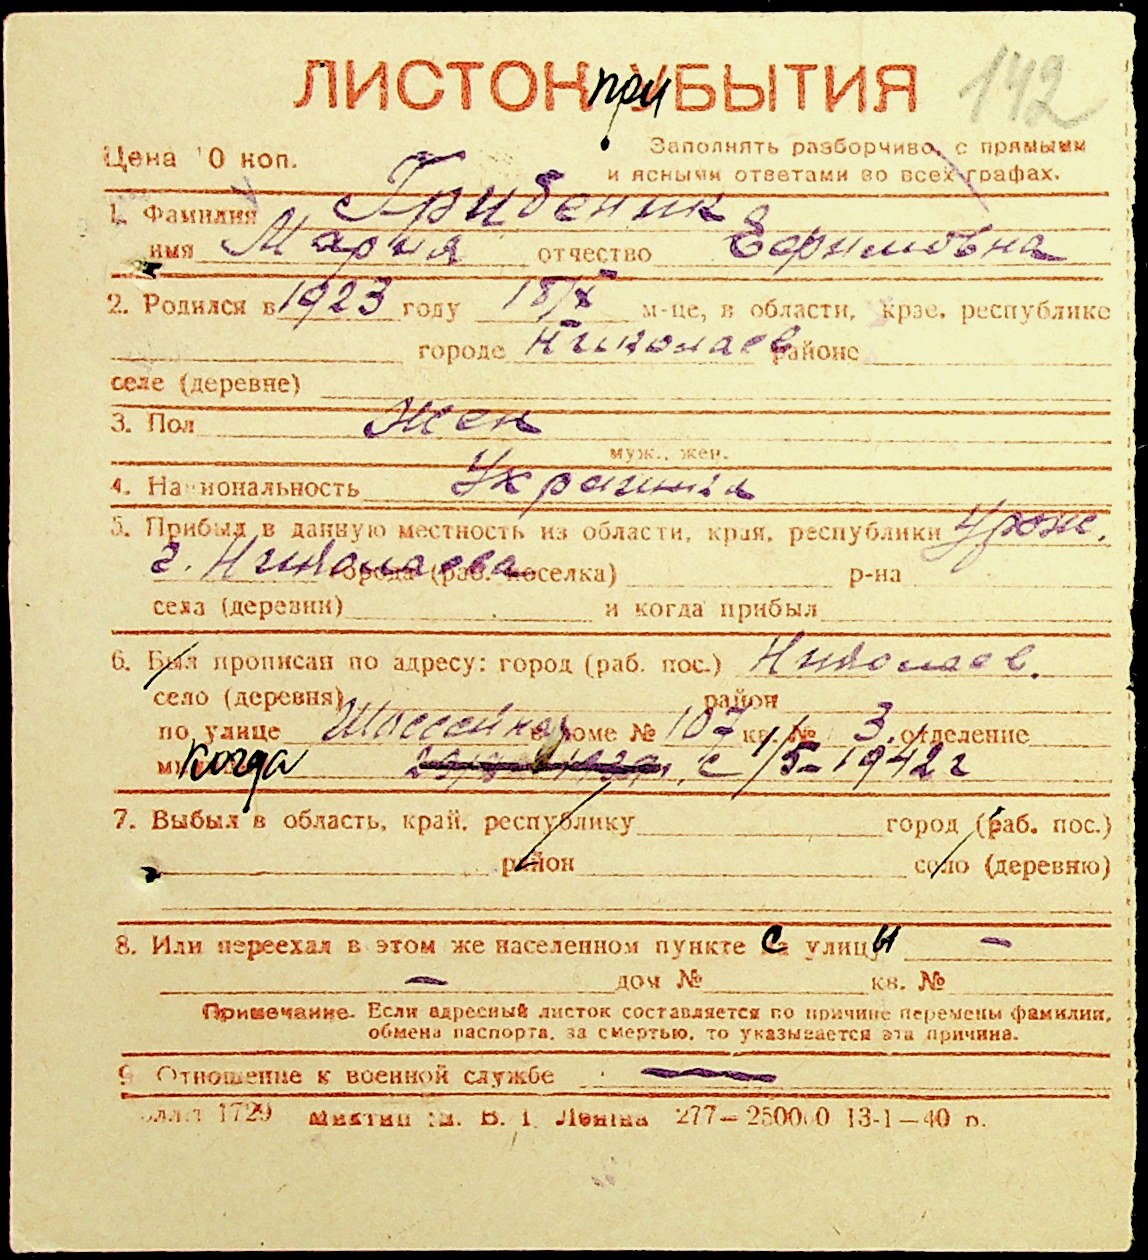 142
ЛИСТОК приУБЫТИЯ
Цена 10 коп.
Заполнять разборчиво, с прямыми
и ясными ответами во всех графах.
1. Фамилия Грибеник
имя Мария отчество Ефимовна
2. Родился в 1923 году 18/X м-це, в области, крае, республике
городе Николаев районе
селе (деревне)
3. Пол Жен
муж., жен.
4. Национальность Украинка
5. Прибыл в данную местность из области, края, республики Урож.
г. Николаева города (раб. поселка) р-на
села (деревни) и когда прибыл
6. Был прописан по адресу: город (раб. пос.) Николаев.
село (деревня) район
по улице Шоссейная в доме № 107 кв. № 3. отделение
когда с 1/5-1942 г
7. Выбыл в область, край, республику город (раб. пос.)
район село (деревню)
8. Или переехал в этом же населенном пункте с улицы –
– дом № кв. №
Примечание. Если адресный листок составляется по причине перемены фамилии,
обмена паспорта, за смертью, то указывается эта причина.
9. Отношение к военной службе —
1729 В. І. Леніна 277—250000 13-1—40 р.